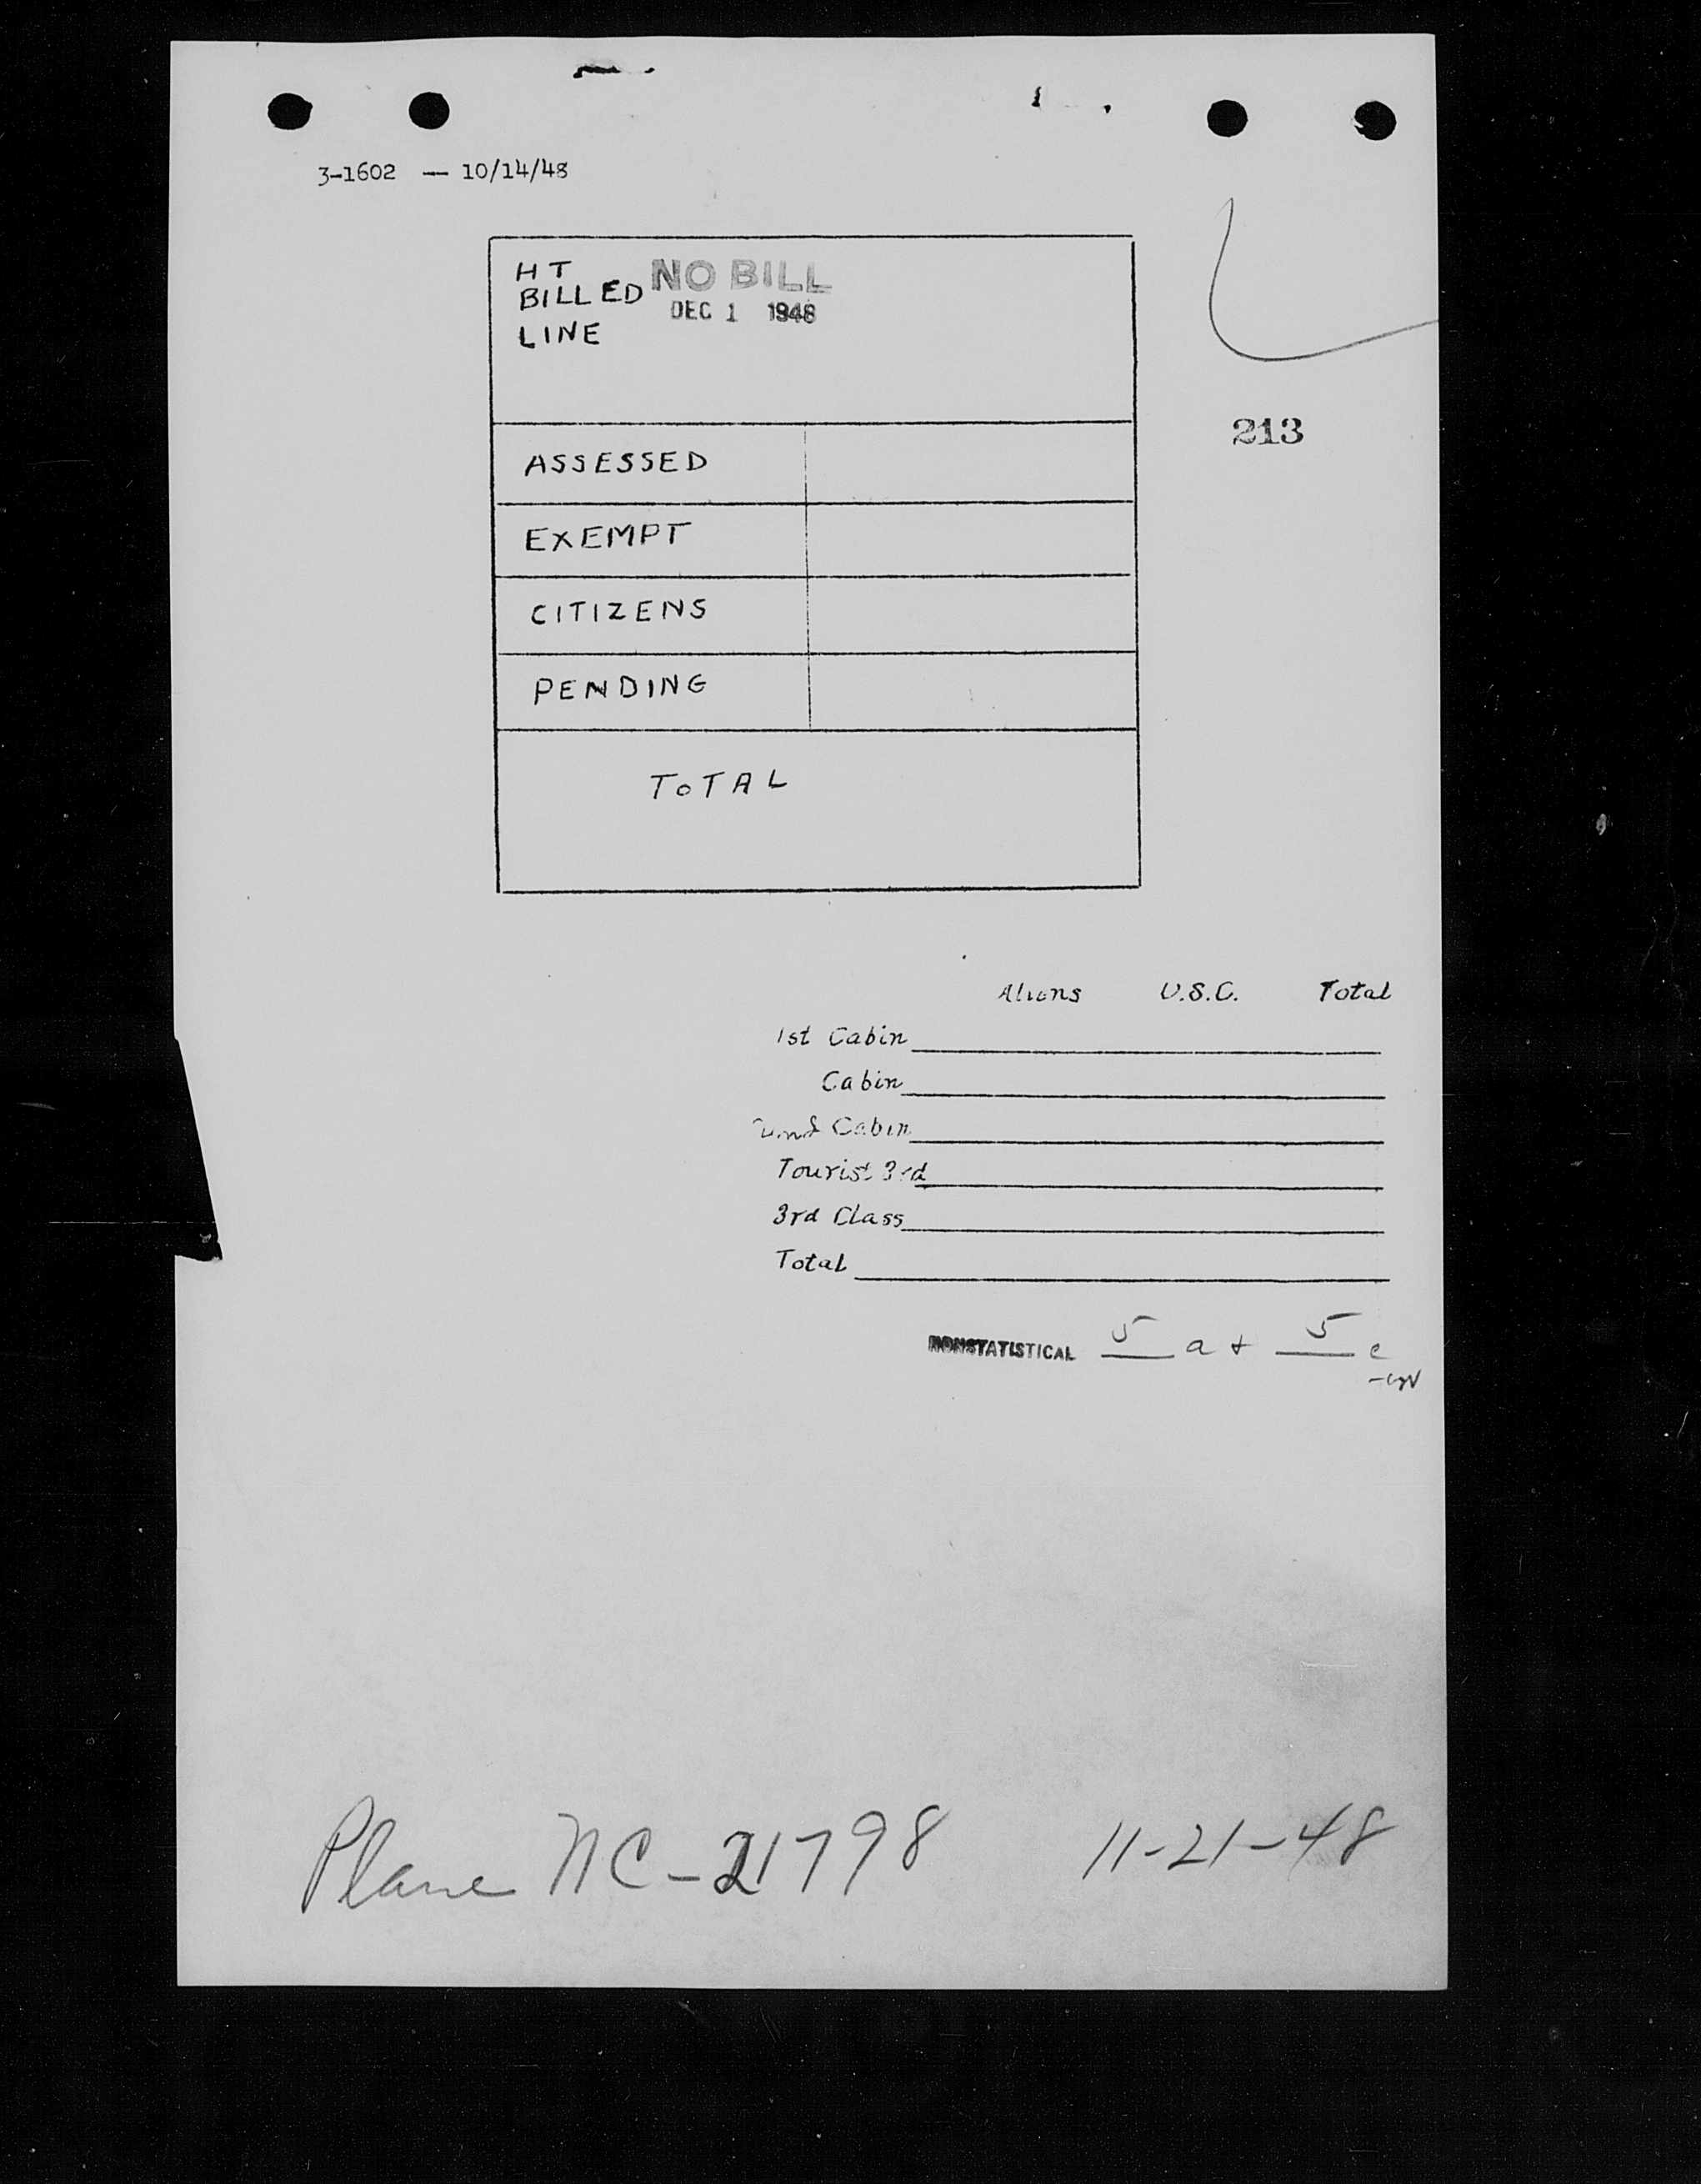 3-1602 — 10/14/48
HT
BILLED NO BILL
DEC 1 1948
LINE
213
ASSESSED
EXEMPT
CITIZENS
PENDING
TOTAL
Aliens U.S.C. Total
1st Cabin
Cabin
Cabin
Tourist 3rd
3rd Class
Total
NONSTATISTICAL 5 a + 5 c
Plane NC-21798 11-21-48